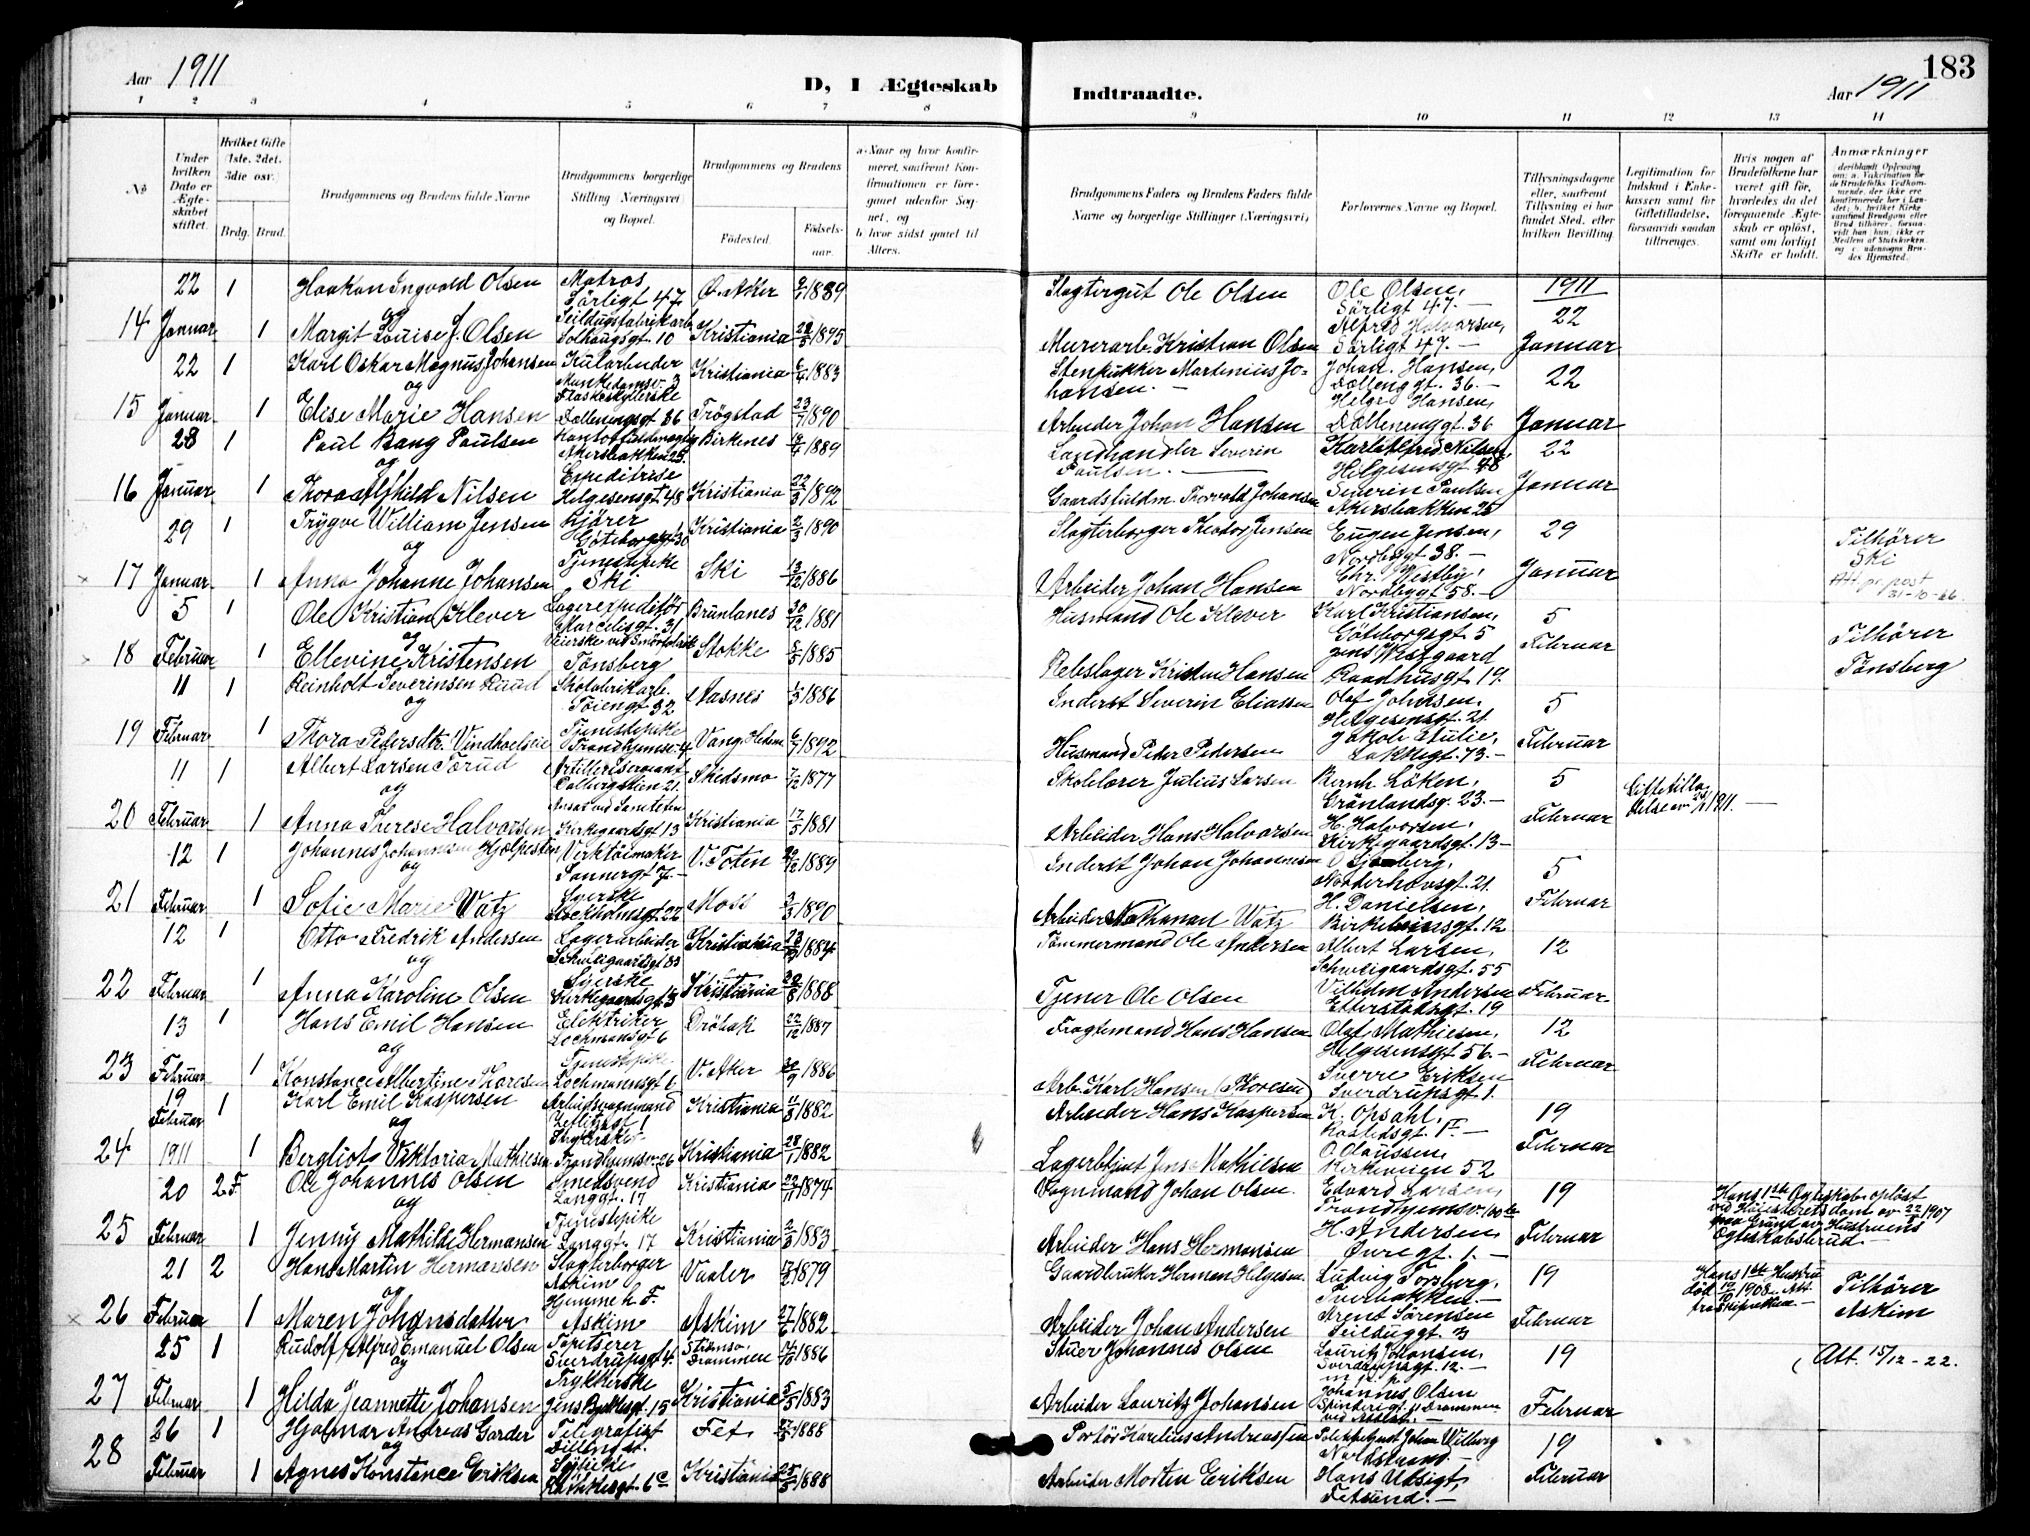 Aar 1911
D, I Ægteskab
Indtraadte.
183
Aar 1911
1 2 3 4 5 6 7 8 9 10 11 12 13 14
No
Under hvilken Dato er Ægteskabet stiftet.
Hvilket Gifte (1ste, 2det, 3die osv.)
Brdg. Brud.
Brudgommens og Brudens fulde Navne
Brudgommens borgerlige Stilling (Næringsvei) og Bopæl.
Brudgommens og Brudens
Fødested.
Fødselsaar.
a. Naar og hvor konfirmeret, saafremt Konfirmationen er foregaaet udenfor Sognet, og
b. hvor sidst gaaet til Alters.
Brudgommens Faders og Brudens Faders fulde Navne og borgerlige Stillinger (Næringsvei)
Forlovernes Navne og Bopæl.
Tillysningsdagene eller, saafremt Tillysning ei har fundet Sted, efter hvilken Bevilling
Legitimation for Indskud i Enkekassen samt for Giftetilladelse, forsaavidt saadan tiltrænges.
Hvis nogen af Brudefolkene har været gift før, hvorledes da det foregaaende Ægteskab er opløst, samt om lovligt Skifte er holdt.
Anmærkninger
22 1 Haakon Ingvald Olsen Matros Sørligt 47 Ø. Aker 1889 Slagtergut Ole Olsen Ole Olsen, Sørligt 47. 1911
14 Januar 1 og Margit Louise J. Olsen Seildugsfabrikarb. Solhaugsgt. 10 Kristiania 1895 Murerarb. Kristian Olsen Alfred Halvorsen, Sørligt 47. 22 Januar
22 1 Karl Oskar Magnus Johansen Kularbeider Munkedamsv. 3 Kristiania 1883 Stenhukker Martenius Johansen. Johan. Hansen, Dællenggt. 36. 22
15 Januar 1 og Elise Marie Hansen Flaskeskyllerske Dællenengsgt 36 Trøgstad 23/7 1890 Arbeider Johan Hansen Helge Hansen, Dællenenggt. 36 Januar
28 1 Paul Bang Paulsen Akersbakken 25. Birkenes 1889 Landhandler Severin Paulsen. Karl Alfred Nilsen, Helgesensgt 48 22
16 Januar 1 og Thora Alfhild Nilsen Expeditrise Helgesensgt 48 Kristiania 1892 Gaardsfuldm. Thorvald Johansen Severin Paulsen Akersbakken 25 Januar
29 1 Trygve William Jensen Kjører Göteborggt 30 Kristiania 1890 Slagterborger Theodor Jensen Eugen Jensen, Nordbygt 38. 29
17 Januar 1 og Anna Johanne Johansen Tjenestepike Ski Ski 13/12 1886 Arbeider Johan Hansen Chr. Westby, Nordbygt 58. Januar Tilhører Ski Att. pr. post 31-10-46.
5 1 Ole Kristian Klever Lagerexpeditør Marcelisgt. 31 Brunlanes 30/12 1881 Husmand Ole Klever Karl Kristiansen, Göteborgsgt. 5 5
18 Februar 1 og Ellevine Kristensen Tønsberg Stokke 1885 Rebslager Kristen Hansen Jens Westgaard Raadhusgt 19. Februar Tilhører Tønsberg
11 1 Reinholt Severinsen Ruud Skofabrikarb. Tøiengt 32 Aasnes 1886 Inderst Severin Eliassen Olaf Johnsen, Helgesensgt. 21. 5
19 Februar 1 og Thora Pedersdtr. Tjenestepike Trondhjemsv. 4 Vang, Hedem. 6/7 1892 Husmand Peder Pedersen Jakob Stulie, Løkkegt. 73. Februar
11 1 Albert Larsen Sørud Artillerisergeant Dalbergstien 21. Skedsmo 7/12 1877 Skolelærer Julius Larsen Bernh. Løken, Grønlandsg. 23. 5 Giftetilladelse av 1911.
20 Februar 1 og Anna Therese Halvorsen Ansat ved Saniteten Kirkegaardsgt 13 Kristiania 17/5 1881 Arbeider Hans Halvorsen H. Halvorsen, Kirkegaardsgt. 13 Februar
12 1 Johannes Johannesen Hjelpesten Verktøimaker Sannergt 7. V. Toten 1889 Inderst Johan Johannesen Sjøberg, Nordderhovsgt. 21. 5
21 Februar 1 og Sofie Marie Watz Syerske Stockholmsgt 22 Moss 1890 Arbeider Nathanan Watz H. Danielsen, Birkelunsgt. 12 Februar
12 1 Otto Fredrik Andersen Lagerarbeider Schweigaardsgt 83 Kristiania 1884 Tømmermand Ole Andersen Albert Larsen, Schweigaardsgt. 55 12
22 Februar 1 og Anna Karoline Olsen Syerske Kirkegaardsgt 13 Kristiania 1888 Tjener Ole Olsen Vilhelm Andersen Etterstadsgt. 19 Februar
13 1 Hans Emil Hansen Elektriker Lochmansgt 6 Drøbak 22/12 1887 Fragtemand Hans Hansen Olaf Mathiesen, Helgesensgt 56. 12
23 Februar 1 og Konstance Albertine Thoresen Tjenestepike Lochmannsgt 6 V. Aker 1886 Arb. Karl Hansen (Thoresen) Sverre Eriksen Sverdrupsgt 1. Februar
19 Februar 1 Karl Emil Kaspersen Arbeidsvognmand Kristiania 1882 Arbeider Hans Kaspersen K. Opsahl, 19
24 1911 1 og Bergliot Viktoria Mathiesen Strykerske Trondhjemsv. 26 Kristiania 28/1 1882 Lagerbetjent Jens Mathiesen O Claussen, Kirkeveien 52 Februar
20 2 F. Ole Johannes Olsen Smedsvend Langgt. 17 Kristiania 22/11 1874 Vognmand Johan Olsen. Edvard Larsen, Trondhjemsv. 100 19 Hans 1ste Ægteskab opløst ved Høiesterets dom av 1907 paa Grund av Hustruens Ægteskabsbrud.
25 Februar 1 og Jenny Mathilde Hermansen Tjenestepike Langgt. 17 Kristiania 1883 Arbeider Hans Hermansen H. Andersen, Øvregt. 1. Februar
21 2 Hans Martin Hermansen Slagterborger Askim Vaaler 1879 Gaardbruker Herman Helgesen. Ludvig Torsberg, Tverbakken. 19 Hans 1ste Hustru død 1908. Att. fra Skifteretten. Tilhører Askim
26 Februar 1 og Maren Johansdatter Hjemme h. F. Askim Askim 27/6 1882 Arbeider Johan Andersen Arent Sørensen Seilduggt. 3 Februar
25 1 Rudolf Alfred Emanuel Olsen Tapetserer Sverdrupsgt 4. Strømsø, Drammen 1886 Stuer Johannes Olsen Lauritz Johansen, Sverdrupsgt. 12. 19 Att. 15/12-22.
27 Februar 1 og Hilda Jeannette Johansen Trykkerske Jens Bjelkesgt. 15 Kristiania 5/5 1883 Arbeider Lauritz Johansen Johannes Olsen Spinderigt. 11 Drammen Februar
26 1 Hjalmar Andreas Garder Telegrafist Lillehgst. Fet 1888 Portør Karelius Andreassen Politibetjent Johan Wilberg Nordstrand. 19
28 Februar 1 og Agnes Konstance Eriksen Rathkesgt. 6c Kristiania 1888 Arbeider Morten Eriksen Hans Utsigt, Fetsund. Februar